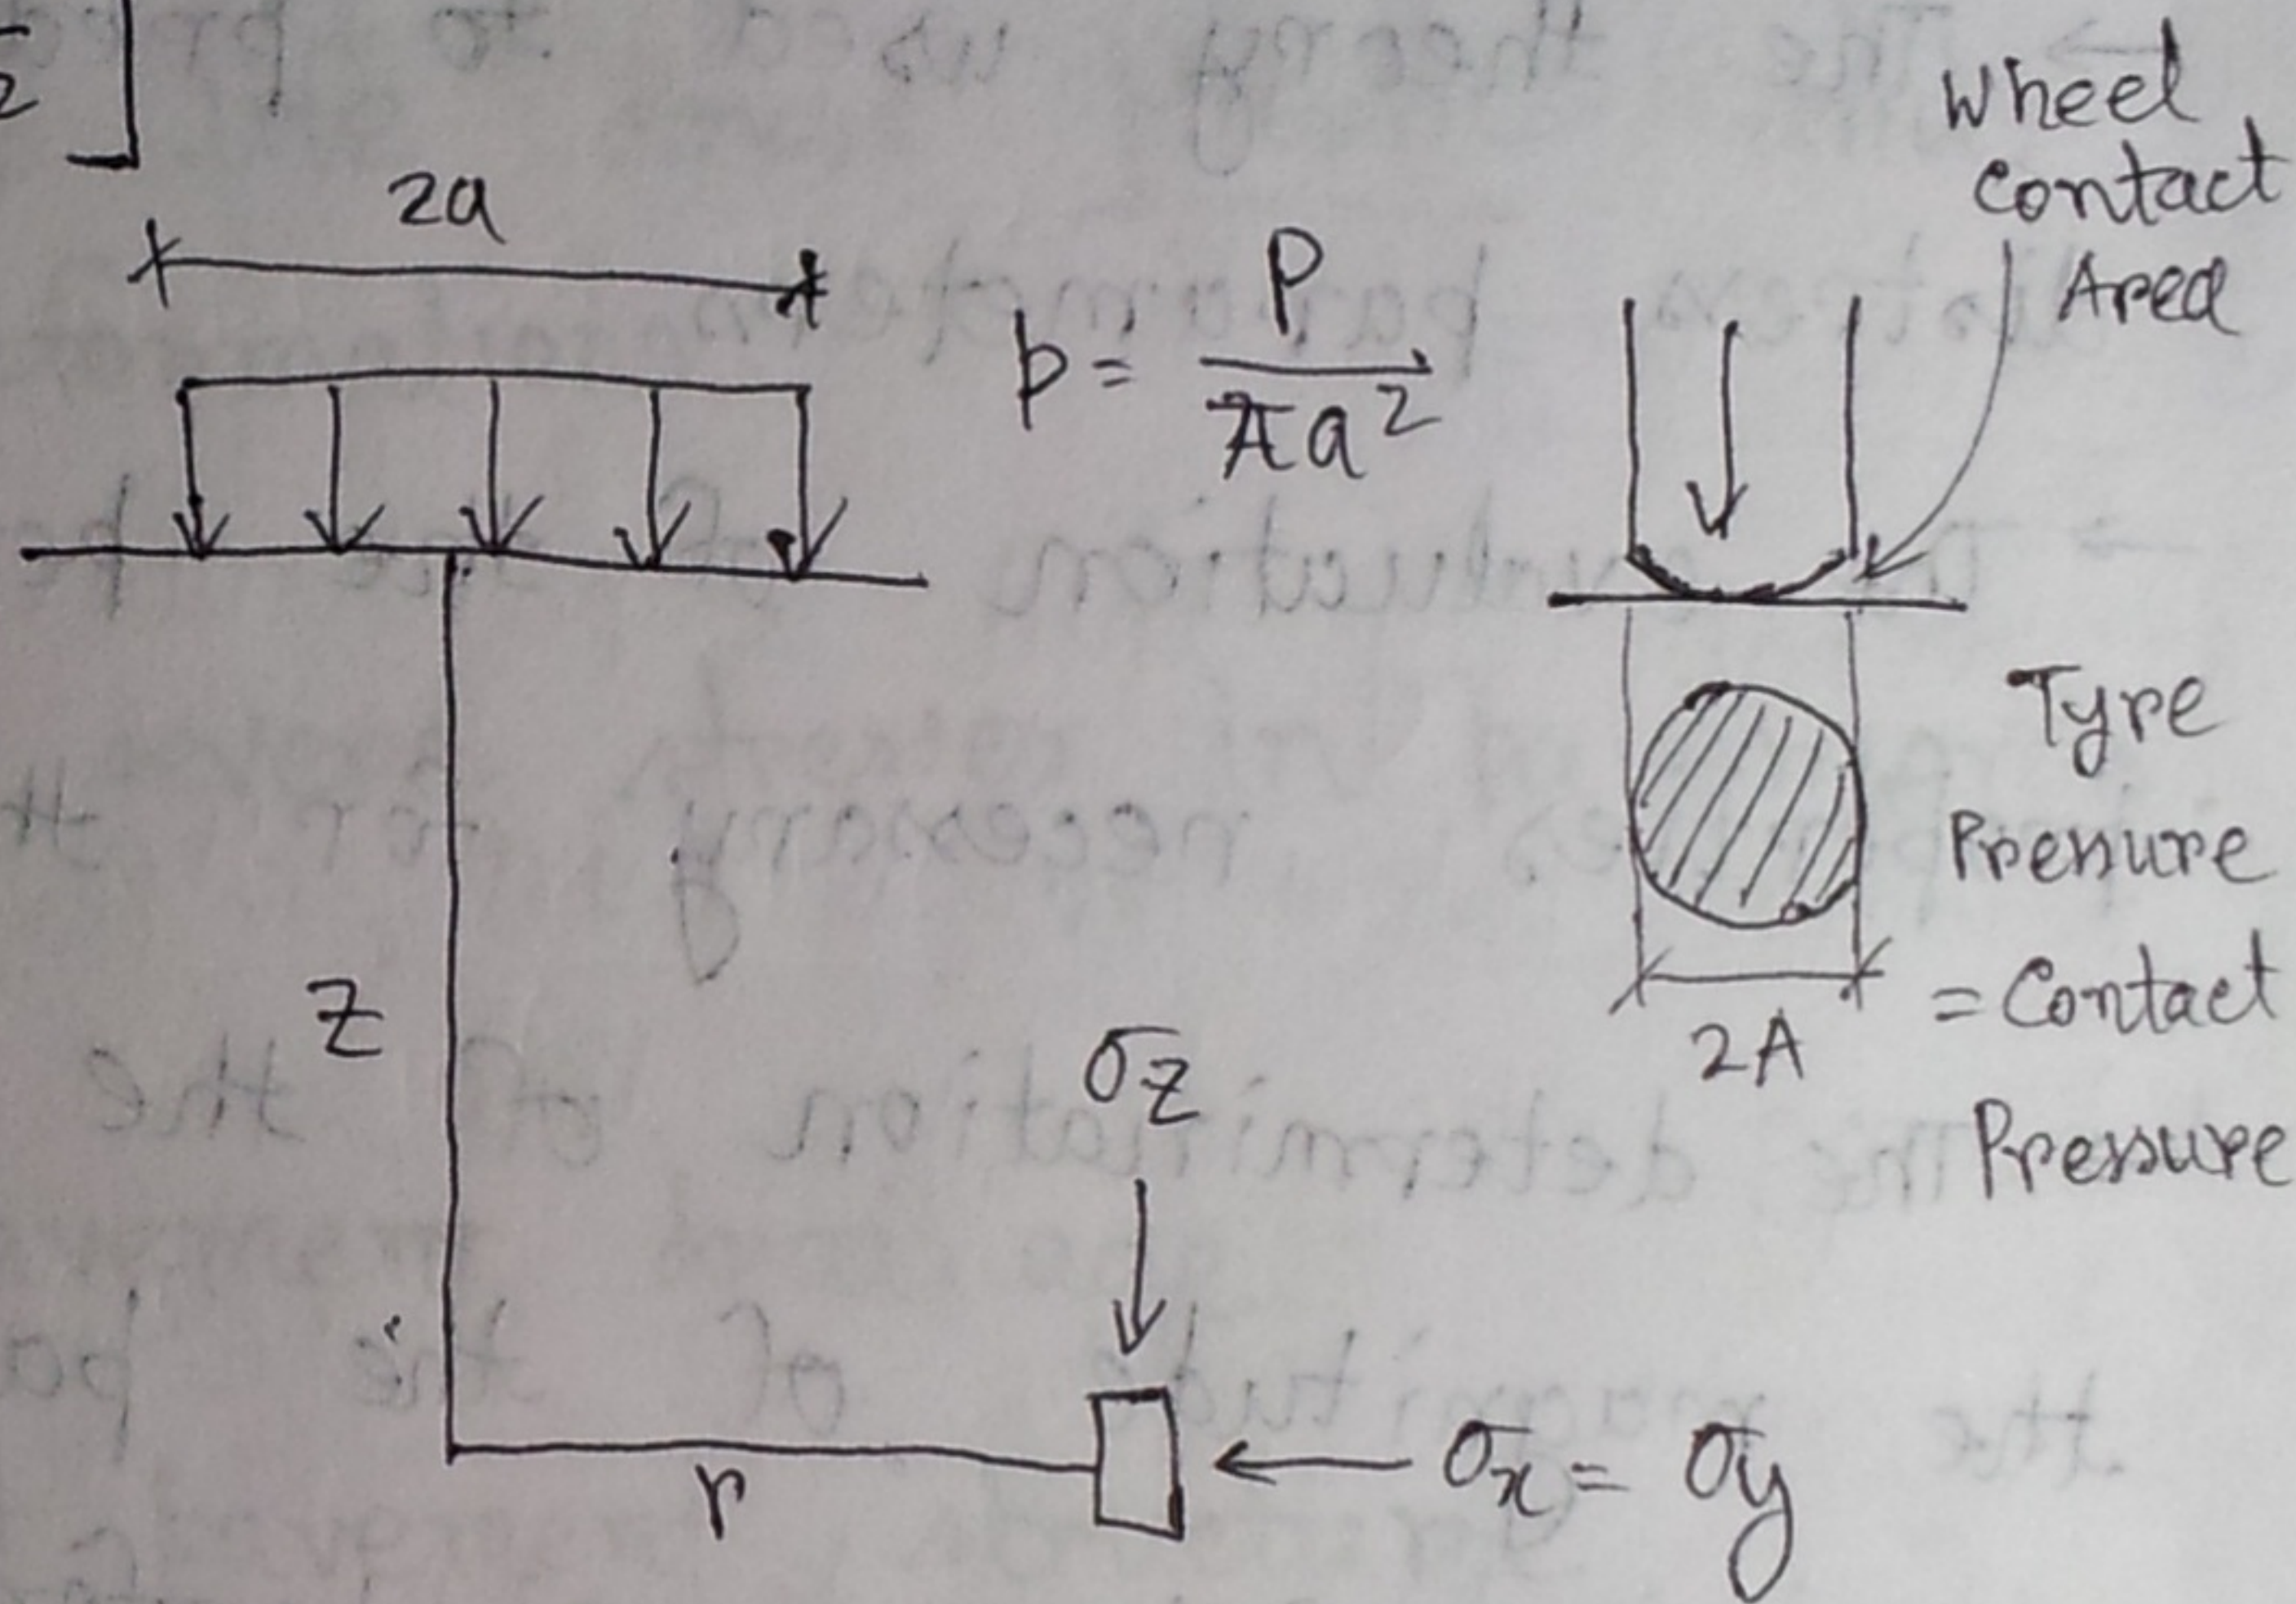 2a
p = P / πa²
Wheel
Contact
Area
Tyre
Pressure
= Contact
Pressure
2A
z
σz
r
σx = σy